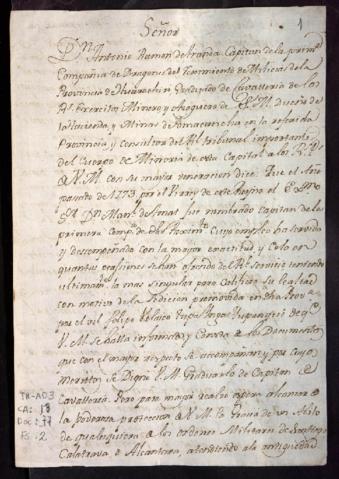 1
Señor
Dn. Antonio Ramon de Aranda Capitan de la prima.
Compañia de Dragones del Regimiento de Milicias de la
Provincia de Huarochiri graduado de Cavalleria de los
Rs. Exercitos Minero y Azoguero de V.M. dueño de
la Hacienda, y Minas de en la referida
Provincia, y consultor del Rl. tribunal importante
del Cuerpo de Mineria de esta Capital a los Rs. Ps.
de V.M. con su mayor veneracion dice: Que el año
pasado de 1773 por el Virrey de este Reyno el Exmo.
Dn. Manl. de Amat fue nombrado capitan de la
primera Compa. de dho Cuyo empleo ha servido
y desempeñado con la mayor exactitud, y celo en
quantas ocasiones se han ofrecido del Rl. servicio
la mas singular para calificar su lealtad
con motivo de la Sedicion promovida en dha Prova.
por el vil Felipe Velasco Tupa Inga Yupanqui de q.
V.M. se halla informado y Consta de los Documentos
que con el mayor respeto se acompañan; y por cuyo
merito se Dignó V.M. Graduarlo de Capitan de
Cavalleria. Pero para mayor realze espera alcanzar de
la poderosa proteccion de V.M. la Gracia de un Avito
de qualquiera de las ordenes Militares de Santiago
Calatrava o Alcantara, atendiendo a la antiguedad
TR-AD3
CA: 18
Doc: 77
Fs: 2